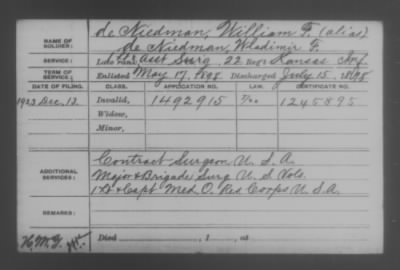 NAME OF SOLDIER: de Niedman, William F. (alias)
de Niedman, Wladimir F.
SERVICE: Late rank, Asst Surg, 22 Reg't Kansas Inf.
TERM OF SERVICE: Enlisted May 17, 1898 Discharged July 15, 1898
DATE OF FILING. CLASS. APPLICATION NO. LAW. CERTIFICATE NO.
1923 Dec. 13. Invalid, 1492915 1245895
Widow,
Minor,
ADDITIONAL SERVICES: Contract Surgeon U. S. A.
Major & Brigade Surg U. S. Vols.
1 Lt & Capt Med. O. Res Corps U. S. A.
REMARKS:
Died , 1 , at